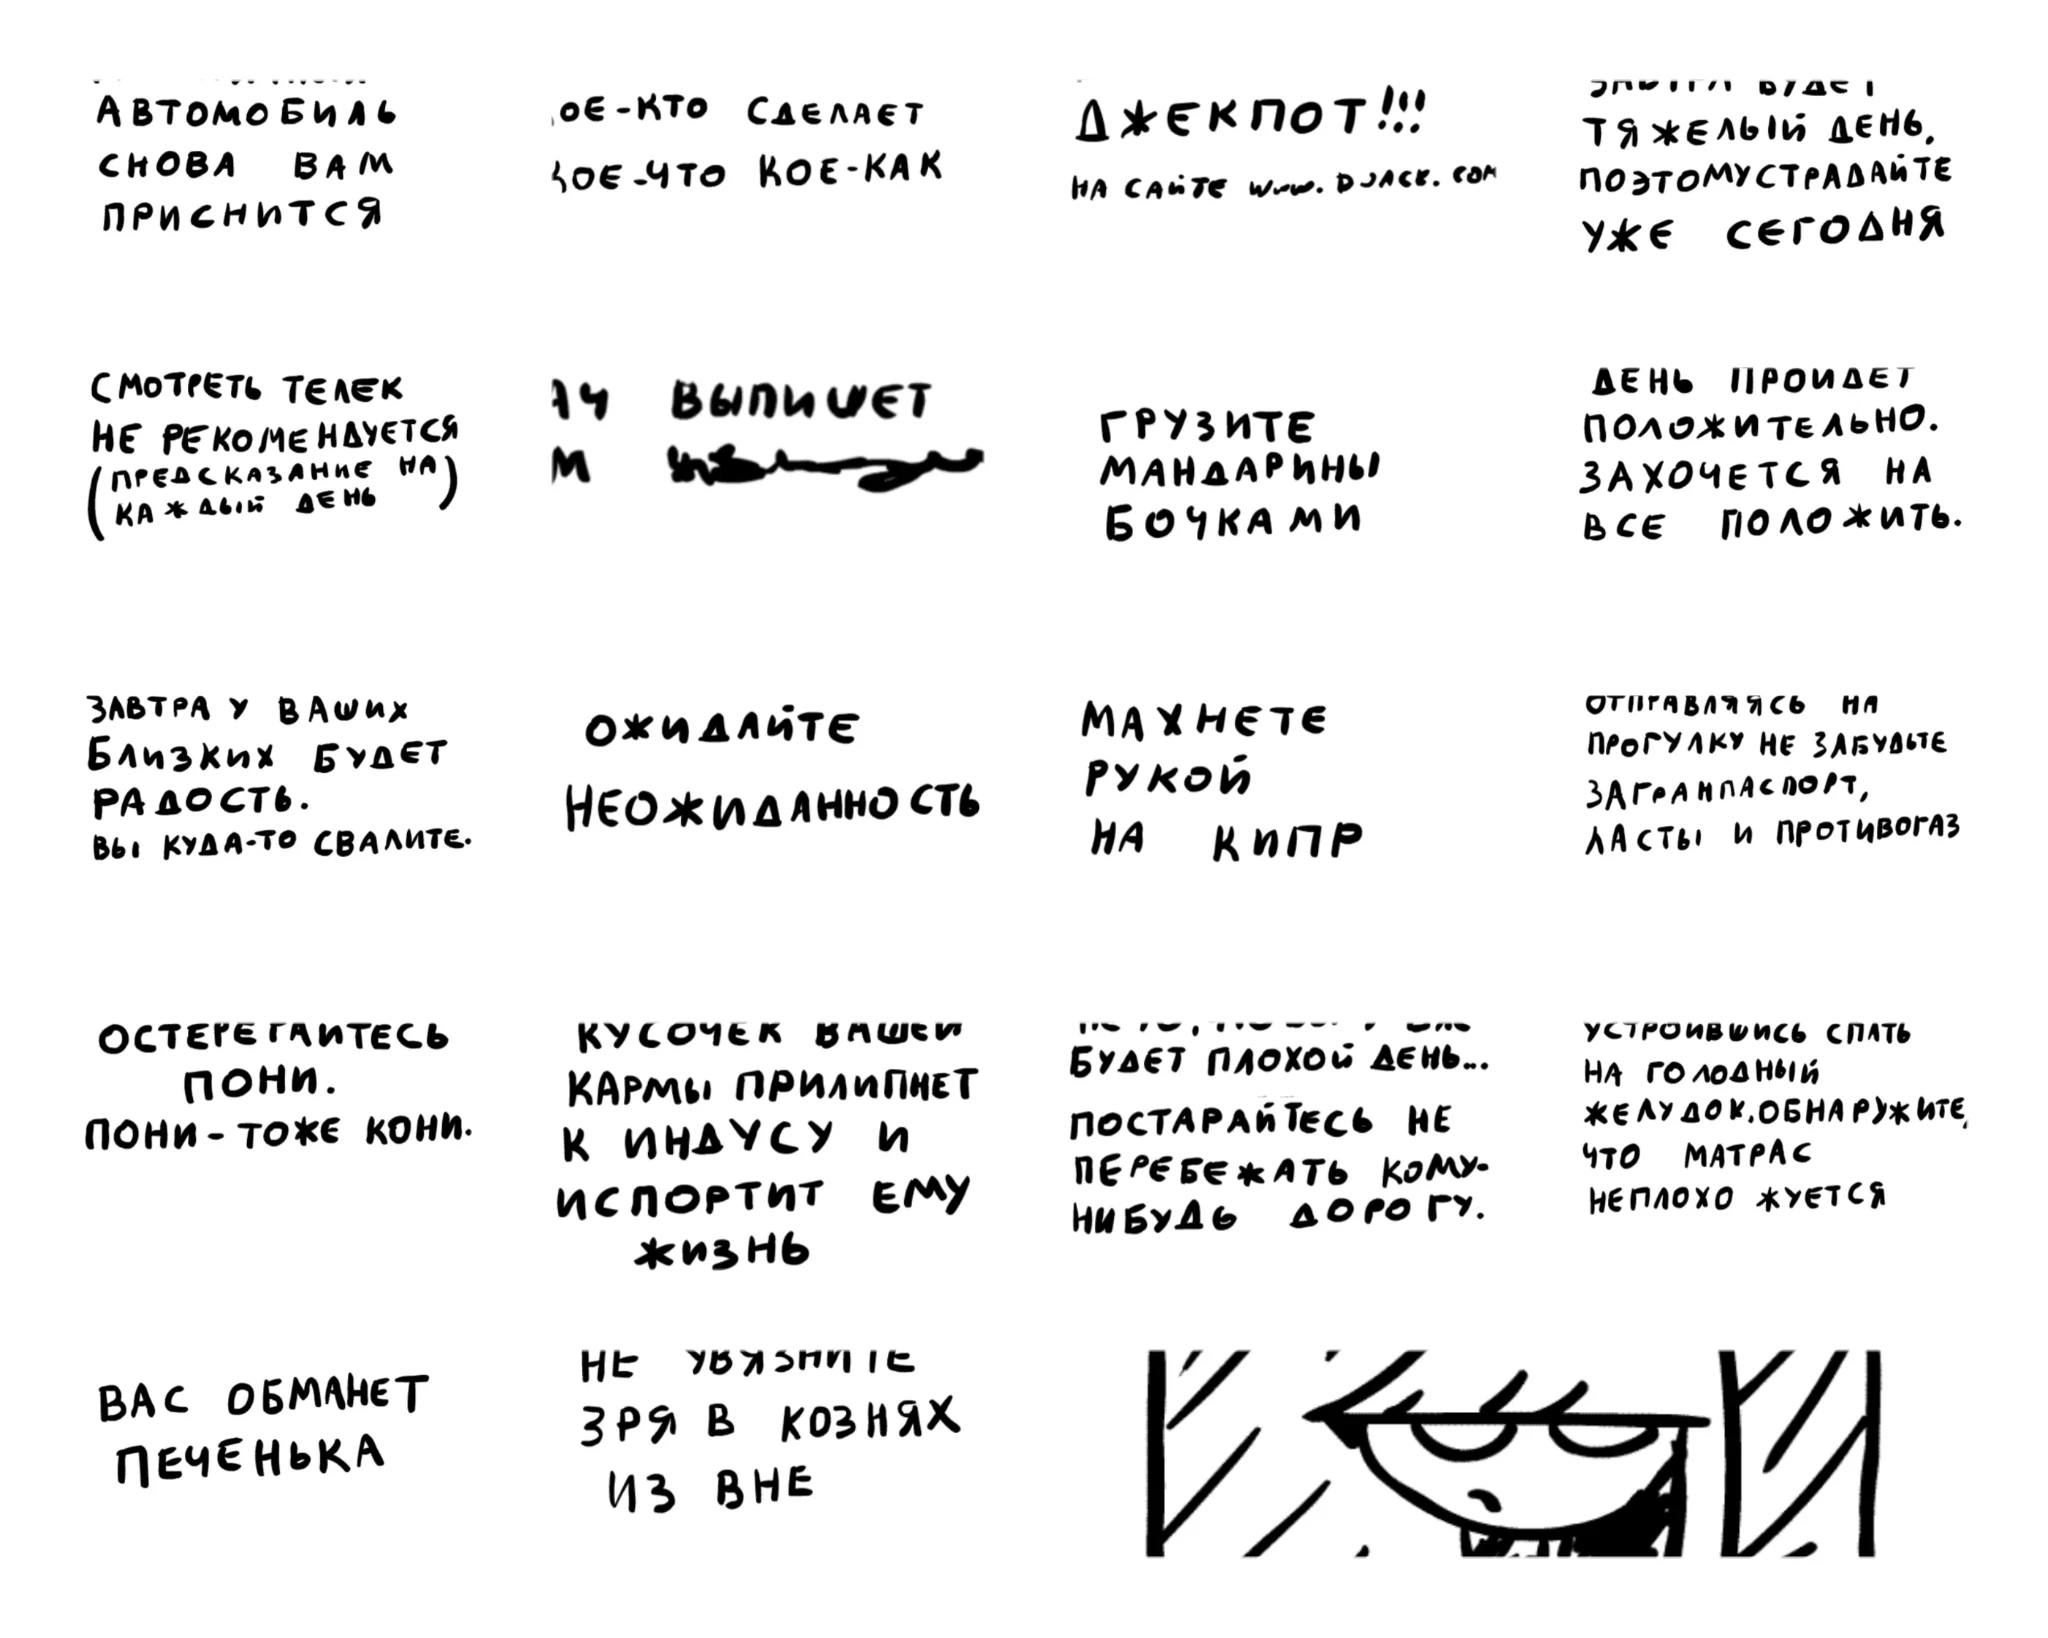 АВТОМОБИЛЬ
СНОВА ВАМ
ПРИСНИТСЯ
СДЕЛАЕТ
КОЕ-КАК
ДЖЕКПОТ!!!
НА САЙТЕ www. DJACK. COM
ЗАВТРА БУДЕТ
ТЯЖЕЛЫЙ ДЕНЬ,
ПОЭТОМУ СТРАДАЙТЕ
УЖЕ СЕГОДНЯ
СМОТРЕТЬ ТЕЛЕК
НЕ РЕКОМЕНДУЕТСЯ
(ПРЕДСКАЗАНИЕ НА
КАЖДЫЙ ДЕНЬ)
ВЫПИШЕТ
ГРУЗИТЕ
МАНДАРИНЫ
БОЧКАМИ
ДЕНЬ ПРОЙДЕТ
ПОЛОЖИТЕЛЬНО.
ЗАХОЧЕТСЯ НА
ВСЕ ПОЛОЖИТЬ.
ЗАВТРА У ВАШИХ
БЛИЗКИХ БУДЕТ
РАДОСТЬ.
ВЫ КУДА-ТО СВАЛИТЕ.
ОЖИДАЙТЕ
НЕОЖИДАННОСТЬ
МАХНЕТЕ
РУКОЙ
НА КИПР
ОТПРАВЛЯЯСЬ НА
ПРОГУЛКУ НЕ ЗАБУДЬТЕ
ЗАГРАНПАСПОРТ,
ЛАСТЫ И ПРОТИВОГАЗ
ОСТЕРЕГАЙТЕСЬ
ПОНИ.
ПОНИ - ТОЖЕ КОНИ.
КУСОЧЕК ВАШЕЙ
КАРМЫ ПРИЛИПНЕТ
К ИНДУСУ И
ИСПОРТИТ ЕМУ
ЖИЗНЬ
БУДЕТ ПЛОХОЙ ДЕНЬ...
ПОСТАРАЙТЕСЬ НЕ
ПЕРЕБЕЖАТЬ КОМУ-
НИБУДЬ ДОРОГУ.
УСТРОИВШИСЬ СПАТЬ
НА ГОЛОДНЫЙ
ЖЕЛУДОК. ОБНАРУЖИТЕ,
ЧТО МАТРАС
НЕПЛОХО ЖУЕТСЯ
ВАС ОБМАНЕТ
ПЕЧЕНЬКА
НЕ УВЯЗНИТЕ
ЗРЯ В КОЗНЯХ
ИЗ ВНЕ